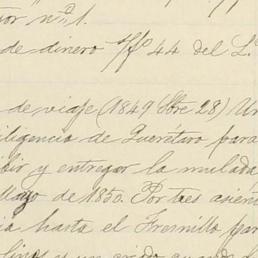 tor nº 1.
de dinero nº 44 del L.
de viaje (1849 Sbre 28) Un
iligencia de Querétaro para
bir y entregar la mulada
Mayo de 1850. Por tres asien
ia hasta el Fresnillo par